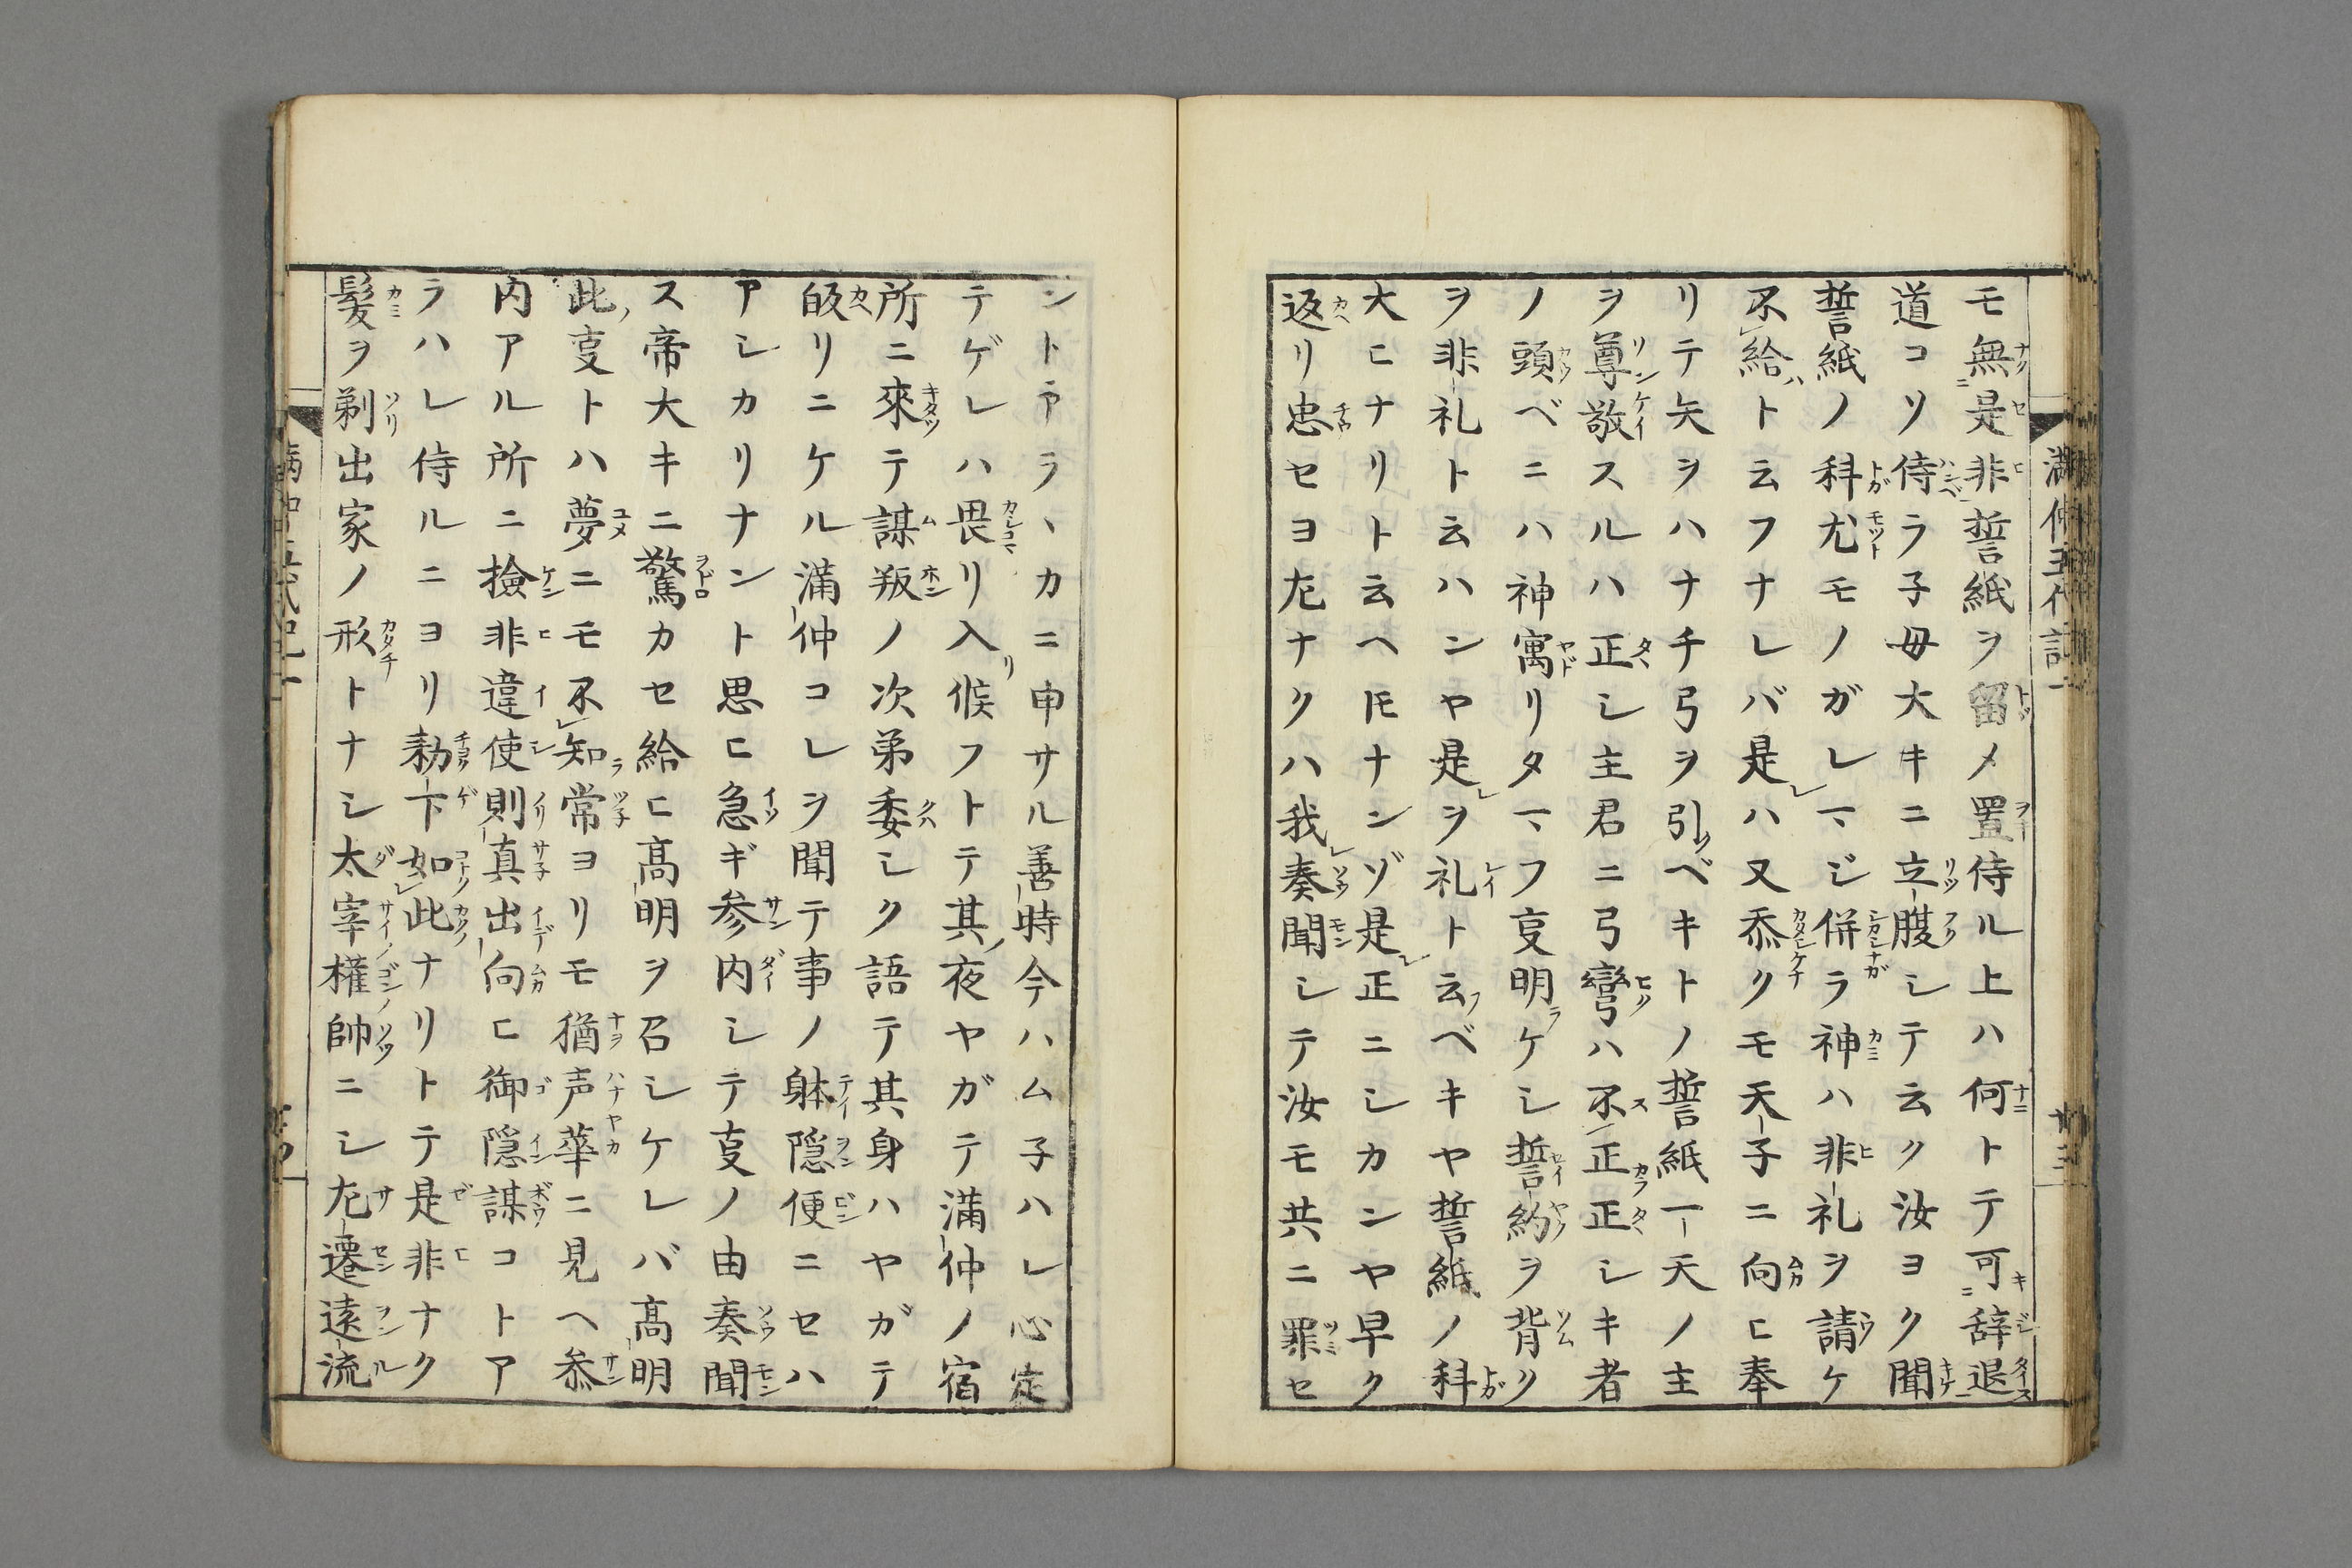 満仲五代記一
廿三
モ無是非誓紙ヲ留メ置侍ル上ハ何トテ可辞退
道コソ侍ラ子母大キニ立腹シテ云ク汝ヨク聞
誓紙ノ科尤モノガレマジ併ラ神ハ非礼ヲ請ケ
不給ト云フナレバ是ハ又忝クモ天子ニ向ヒ奉
リテ矢ヲハナチ弓ヲ引ベキトノ誓紙一天ノ主
ヲ尊敬スルハ正シ主君ニ弓彎ハ不正正シキ者
ノ頭ベニハ神寓リタマフ㕝明ケシ誓約ヲ背ク
ヲ非礼ト云ハンヤ是ヲ礼ト云ベキヤ誓紙ノ科
大ヒナリト云ヘ𪜈ナンゾ是正ニシカンヤ早ク
返リ忠セヨ尤ナクハ我奏聞シテ汝モ共ニ罪セ
ントアラヽカニ申サル善時今ハム子ハレ心定
テゲレハ畏リ入候フトテ其夜ヤガテ満仲ノ宿
所ニ來テ謀叛ノ次弟委シク語テ其身ハヤガテ
皈リニケル満仲コレヲ聞テ事ノ躰隠便ニセハ
アシカリナント思ヒ急ギ参内シテ㕝ノ由奏聞
ス帝大キニ驚カセ給ヒ髙明ヲ召シケレバ髙明
此㕝トハ夢ニモ不知常ヨリモ猶声華ニ見ヘ叅
内アル所ニ撿非違使則真出向ヒ御隠謀コトア
ラハレ侍ルニヨリ勅下如此ナリトテ是非ナク
髪ヲ剃出家ノ形トナシ太宰權帥ニシ左遷遠流